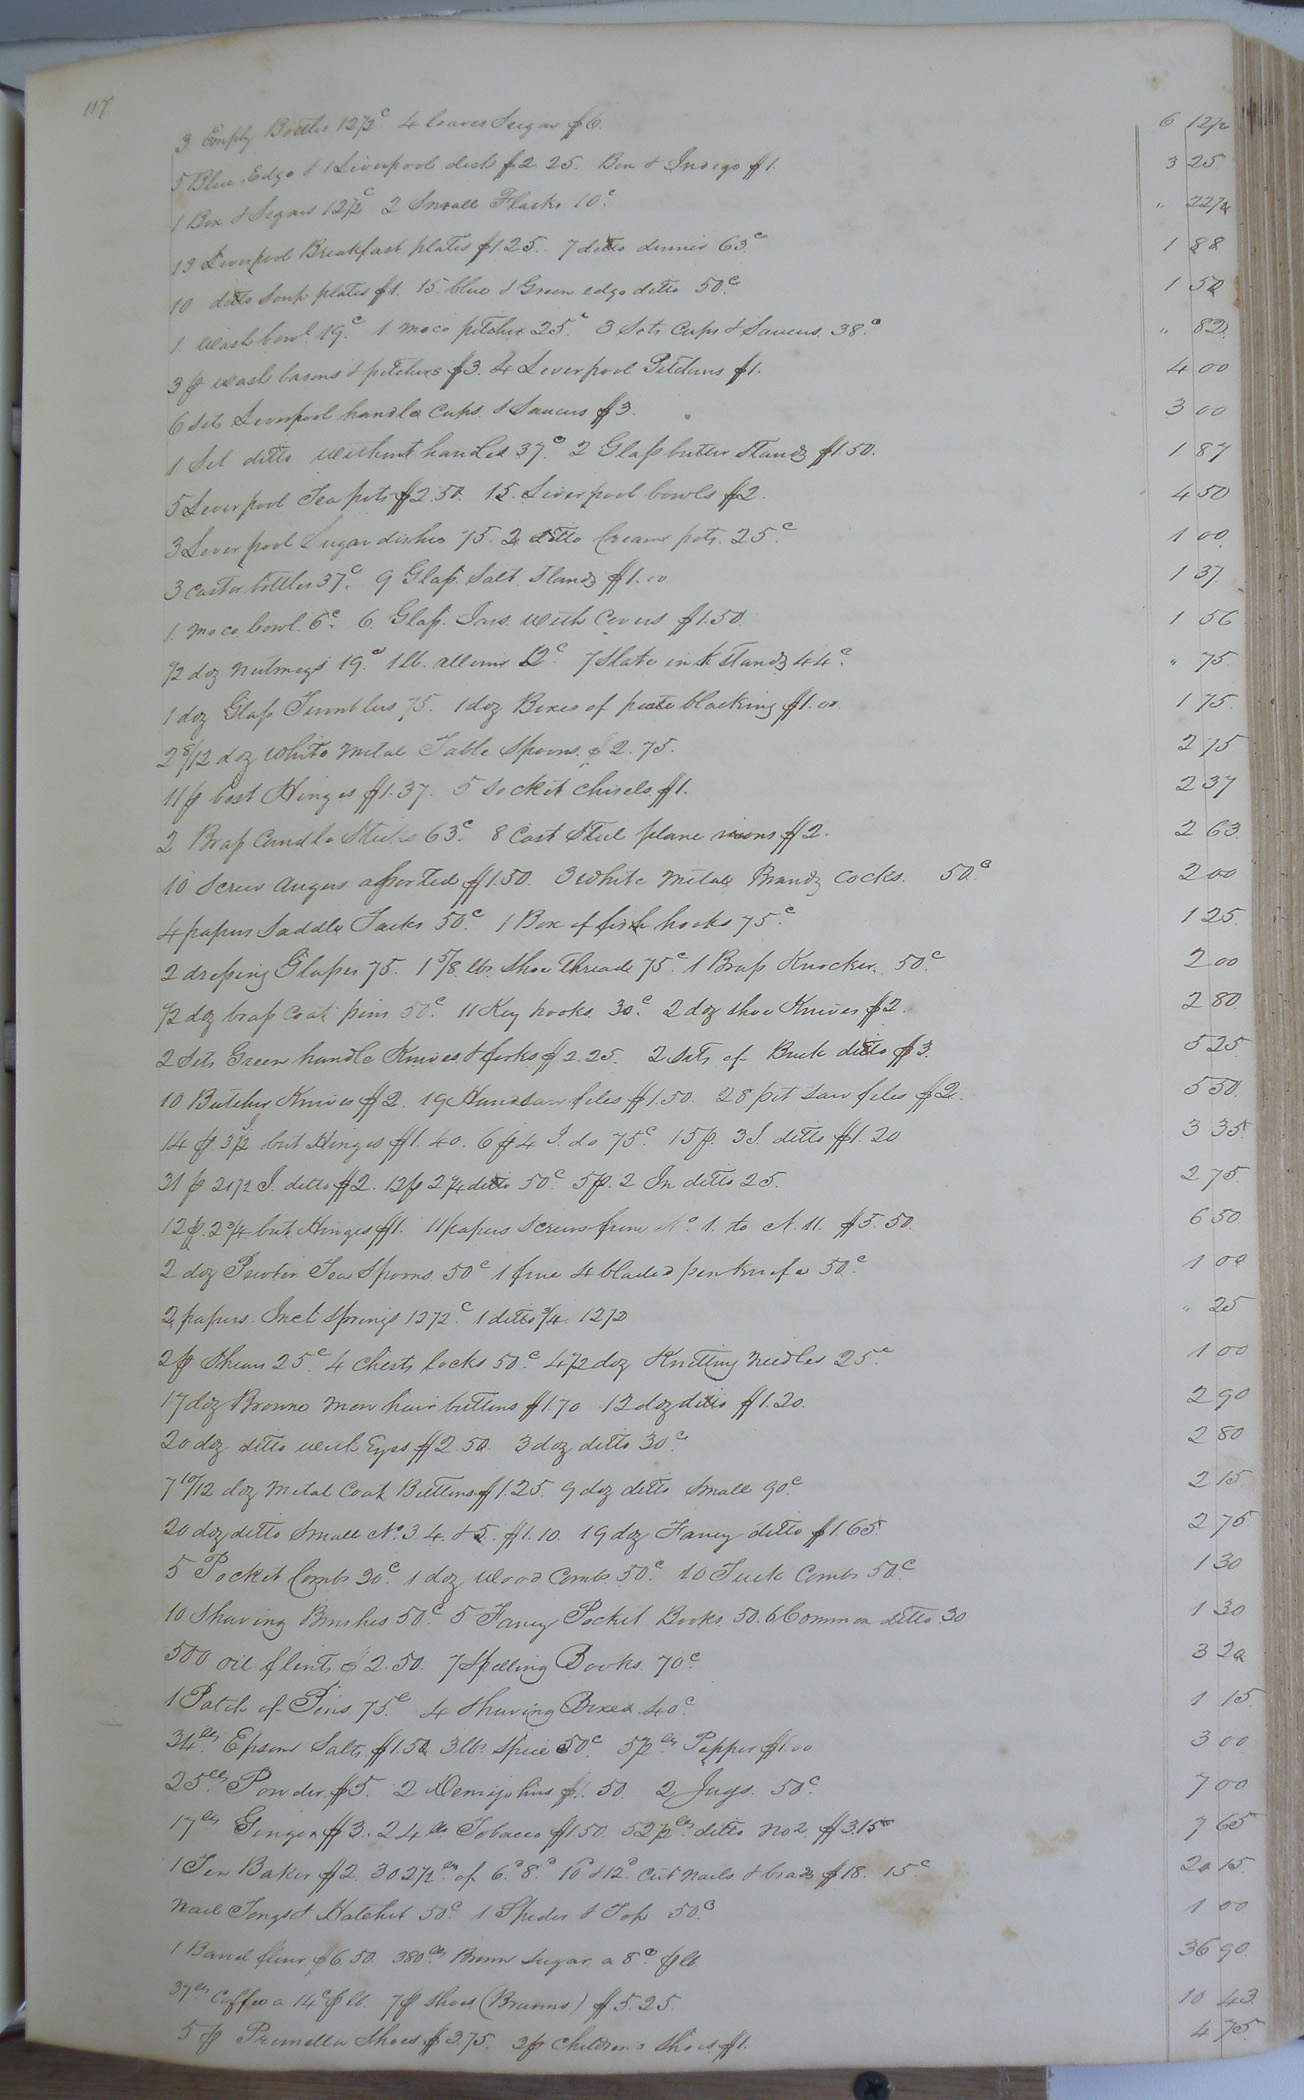 117
3 Empty Bottles 12½c 4 loaves Sugar $6. 6 12½
5 Blue Edge & 1 Liverpool dish $2.25. Box & Indigo $1. 3 25
1 Box & Segars 12½c 2 Small Flasks 10c. " 22½
13 Liverpool Breakfast plates $1.25. 7 ditto dinner 63c 1 88
10 ditto Soup plates $1. 15 blue & Green edge ditto 50c. 1 50
1 wash bowl 19c. 1 moco pitcher 25c. 3 Sets Cups & Saucers. 38c. " 82
3 p wash basons & pitchers $3. 4 Liverpool Pitchers $1. 4 00
6 Sets Liverpool handle Cups & Saucers $3. 3 00
1 Set ditto without handles 37c. 2 Glass butter Stands $1.50. 1 87
5 Liverpool Tea pots $2.50. 15 Liverpool bowls $2. 4 50
3 Liverpool Sugar dishes 75. 2 ditto Cream pots. 25c. 1 00
3 Castor bottles 37c. 9 Glass Salt Stands $1.00 1 37
1 moco bowl. 6c. 6 Glass Jars with Covers $1.50. 1 56
½ doz nutmegs 19c. 1 lb. allum 12c. 7 Slate ink stands 44c. " 75
1 doz Glass Tumblers 75. 1 doz Boxes of paste blacking $1.00 1 75
2 8/12 doz White metal Table Spoons. $2.75. 2 75
11 p best Hinges $1.37. 5 Socket chisels $1. 2 37
2 Brass Candle Sticks 63c. 8 Cast Steel plane irons $2. 2 63
10 Screw augurs assorted $1.50. 3 White Metal Brandy Cocks. 50c 2 00
4 papers Saddle Tacks 50c. 1 Box of fish hooks 75c. 1 25
2 dressing Glasses 75. 1 5/8 lbs Shoe Thread 75c. 1 Brass Knocker. 50c. 2 00
½ doz brass Coat pins 50c. 11 Key hooks. 30c. 2 doz Shoe Knives $2. 2 80
2 Sets Green handle Knives & forks $2.25. 2 Sets of Buck ditto $3. 5 25
10 Butcher Knives $2. 19 Handsaw files $1.50. 28 pit Saw files $2. 5 50
14 p 3½ I but Hinges $1.40. 6 p 4 I. do 75c. 15 p. 3 I. ditto $1.20 3 35
31 p 2½ I. ditto $2. 12 p 2¼ ditto 50c. 5 p. 2 In ditto 25. 2 75
12 p. 2¾ but Hinges $1. 11 papers Screws from No. 1. to N. 11. $5.50. 6 50
2 doz Pewter Tea Spoons. 50c 1 fine 4 bladed penknife 50c. 1 00
2 papers. Inch Springs 12½c. 1 ditto ¾. 12½ " 25
2 p Shears 25c. 4 Chests locks 50c. 4½ doz Knitting needles 25c. 1 00
17 doz Browne men hair buttons $1.70 12 doz ditto $1.20. 2 90
20 doz ditto with Eyes $2.50. 3 doz ditto 30c. 2 80
7 10/12 doz metal Coat Buttons $1.25. 9 doz ditto Small 90c. 2 15
20 doz ditto Small No. 3 4. & 5. $1.10. 19 doz Fancy ditto $1.65. 2 75
5 Pocket Combs 30c. 1 doz wood Combs. 50c. 10 Tuck Combs 50c. 1 30
10 Shaving Brushes 50c. 5 Fancy Pocket Books. 50. 6 Common ditto 30 1 30
500 oil flints $2.50. 7 Spelling Books. 70c. 3 20
1 Patch of Pins 75c 4 Shaving Boxes 40c. 1 15
34 lbs. Epsom Salts $1.50. 3 lbs Spice 50c. 5½ lbs Pepper $1.00 3 00
25 lbs Powder. $5. 2 Demijohns $1.50. 2 Jugs. 50c. 7 00
17 lbs Ginger $3. 24 lbs Tobacco $1.50. 52½ lbs. ditto No 2. $3.15 7 65
1 Tin Baker $2. 302½ lbs. of 6d 8d 10d & 12d Cut nails & brads $18.15c 20 15
Nail Tongs & Hatchet 50c. 1 Spider & Top 50c. 1 00
1 Barrel flour $6.50. 380 lbs. Brown Sugar a 8c p lb 36 90
37 lbs Coffee a 14c p lb. 7 p Shoes (Brunns) $5.25. 10 43
5 p Prunella Shoes $3.75. 2 p Childrens Shoes $1. 4 75